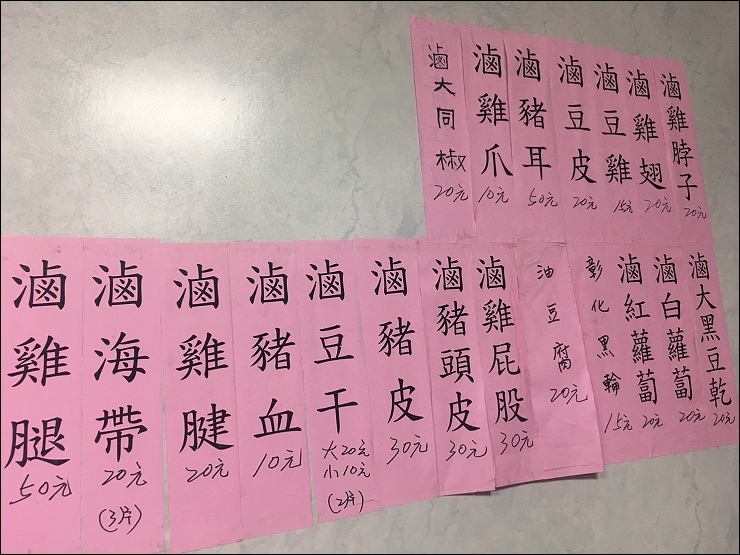 滷大同椒
20元
滷雞爪
10元
滷豬耳
50元
滷豆皮
20元
滷豆雞
15元
滷雞翅
20元
滷雞脖子
20元
滷雞腿
50元
滷海帶
20元
(3片)
滷雞腱
20元
滷豬血
10元
滷豆干
大20元
小10元
(2片)
滷豬皮
30元
滷豬頭皮
30元
滷雞屁股
30元
油豆腐
20元
彰化黑輪
15元
滷紅蘿蔔
20元
滷白蘿蔔
20元
滷大黑豆乾
20元